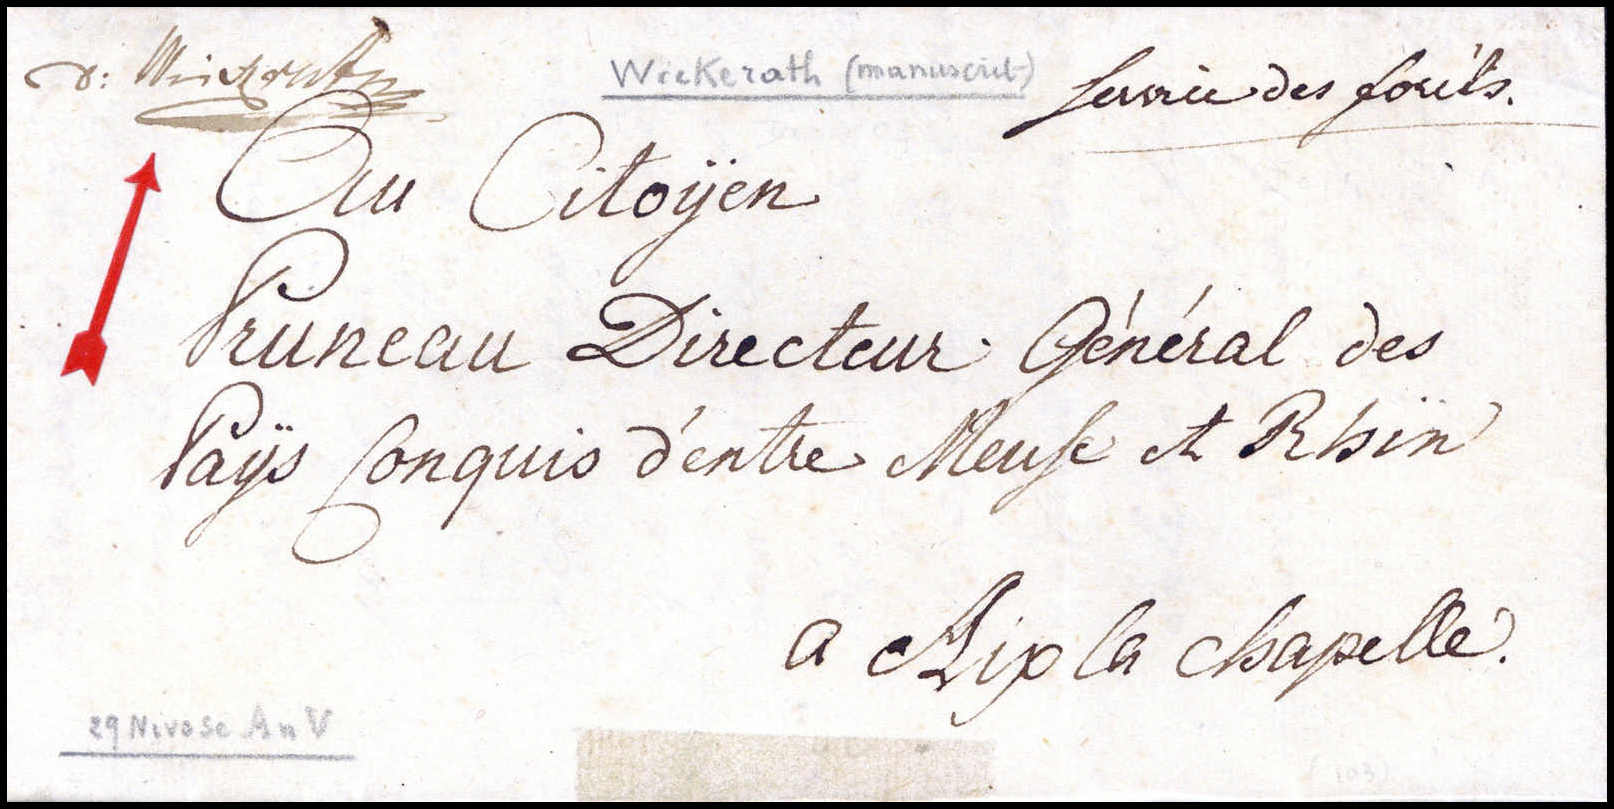 d: Wickrath
Wickerath (manuscrit)
Service des forêts.
Au Citoÿen
Pruneau Directeur Général des
Paÿs Conquis d'entre Meuse et Rhin
a Aix la Chapelle.
29 Nivose An V
(103)